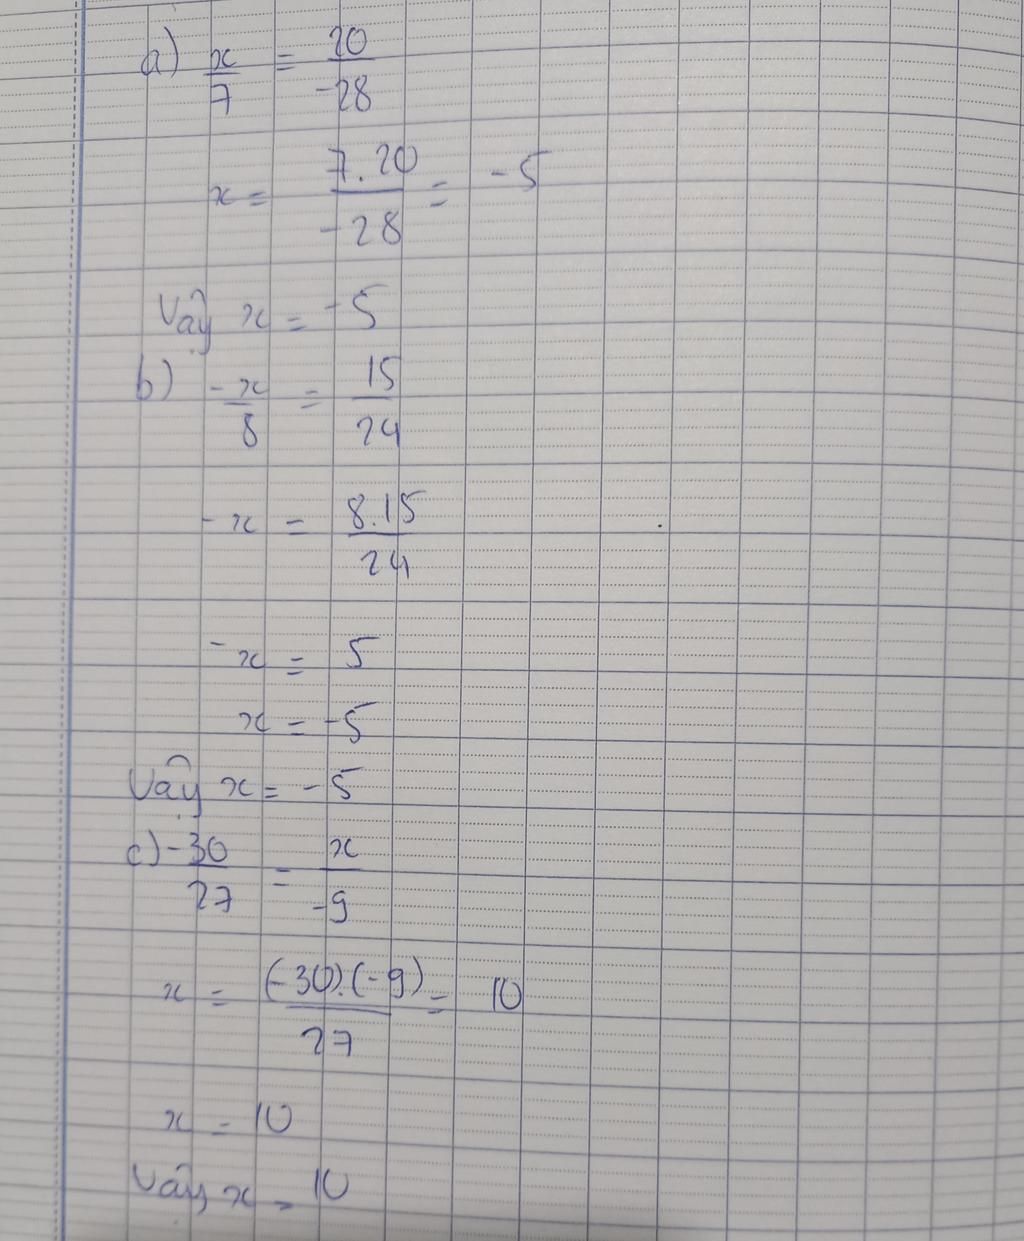 a) x/7 = 20/-28
x = 7.20/-28 = -5
Vậy x = -5
b) -x/8 = 15/24
-x = 8.15/24
-x = 5
x = -5
Vậy x = -5
c) -30/27 = x/-9
x = (-30).(-9)/27 = 10
x = 10
Vậy x = 10